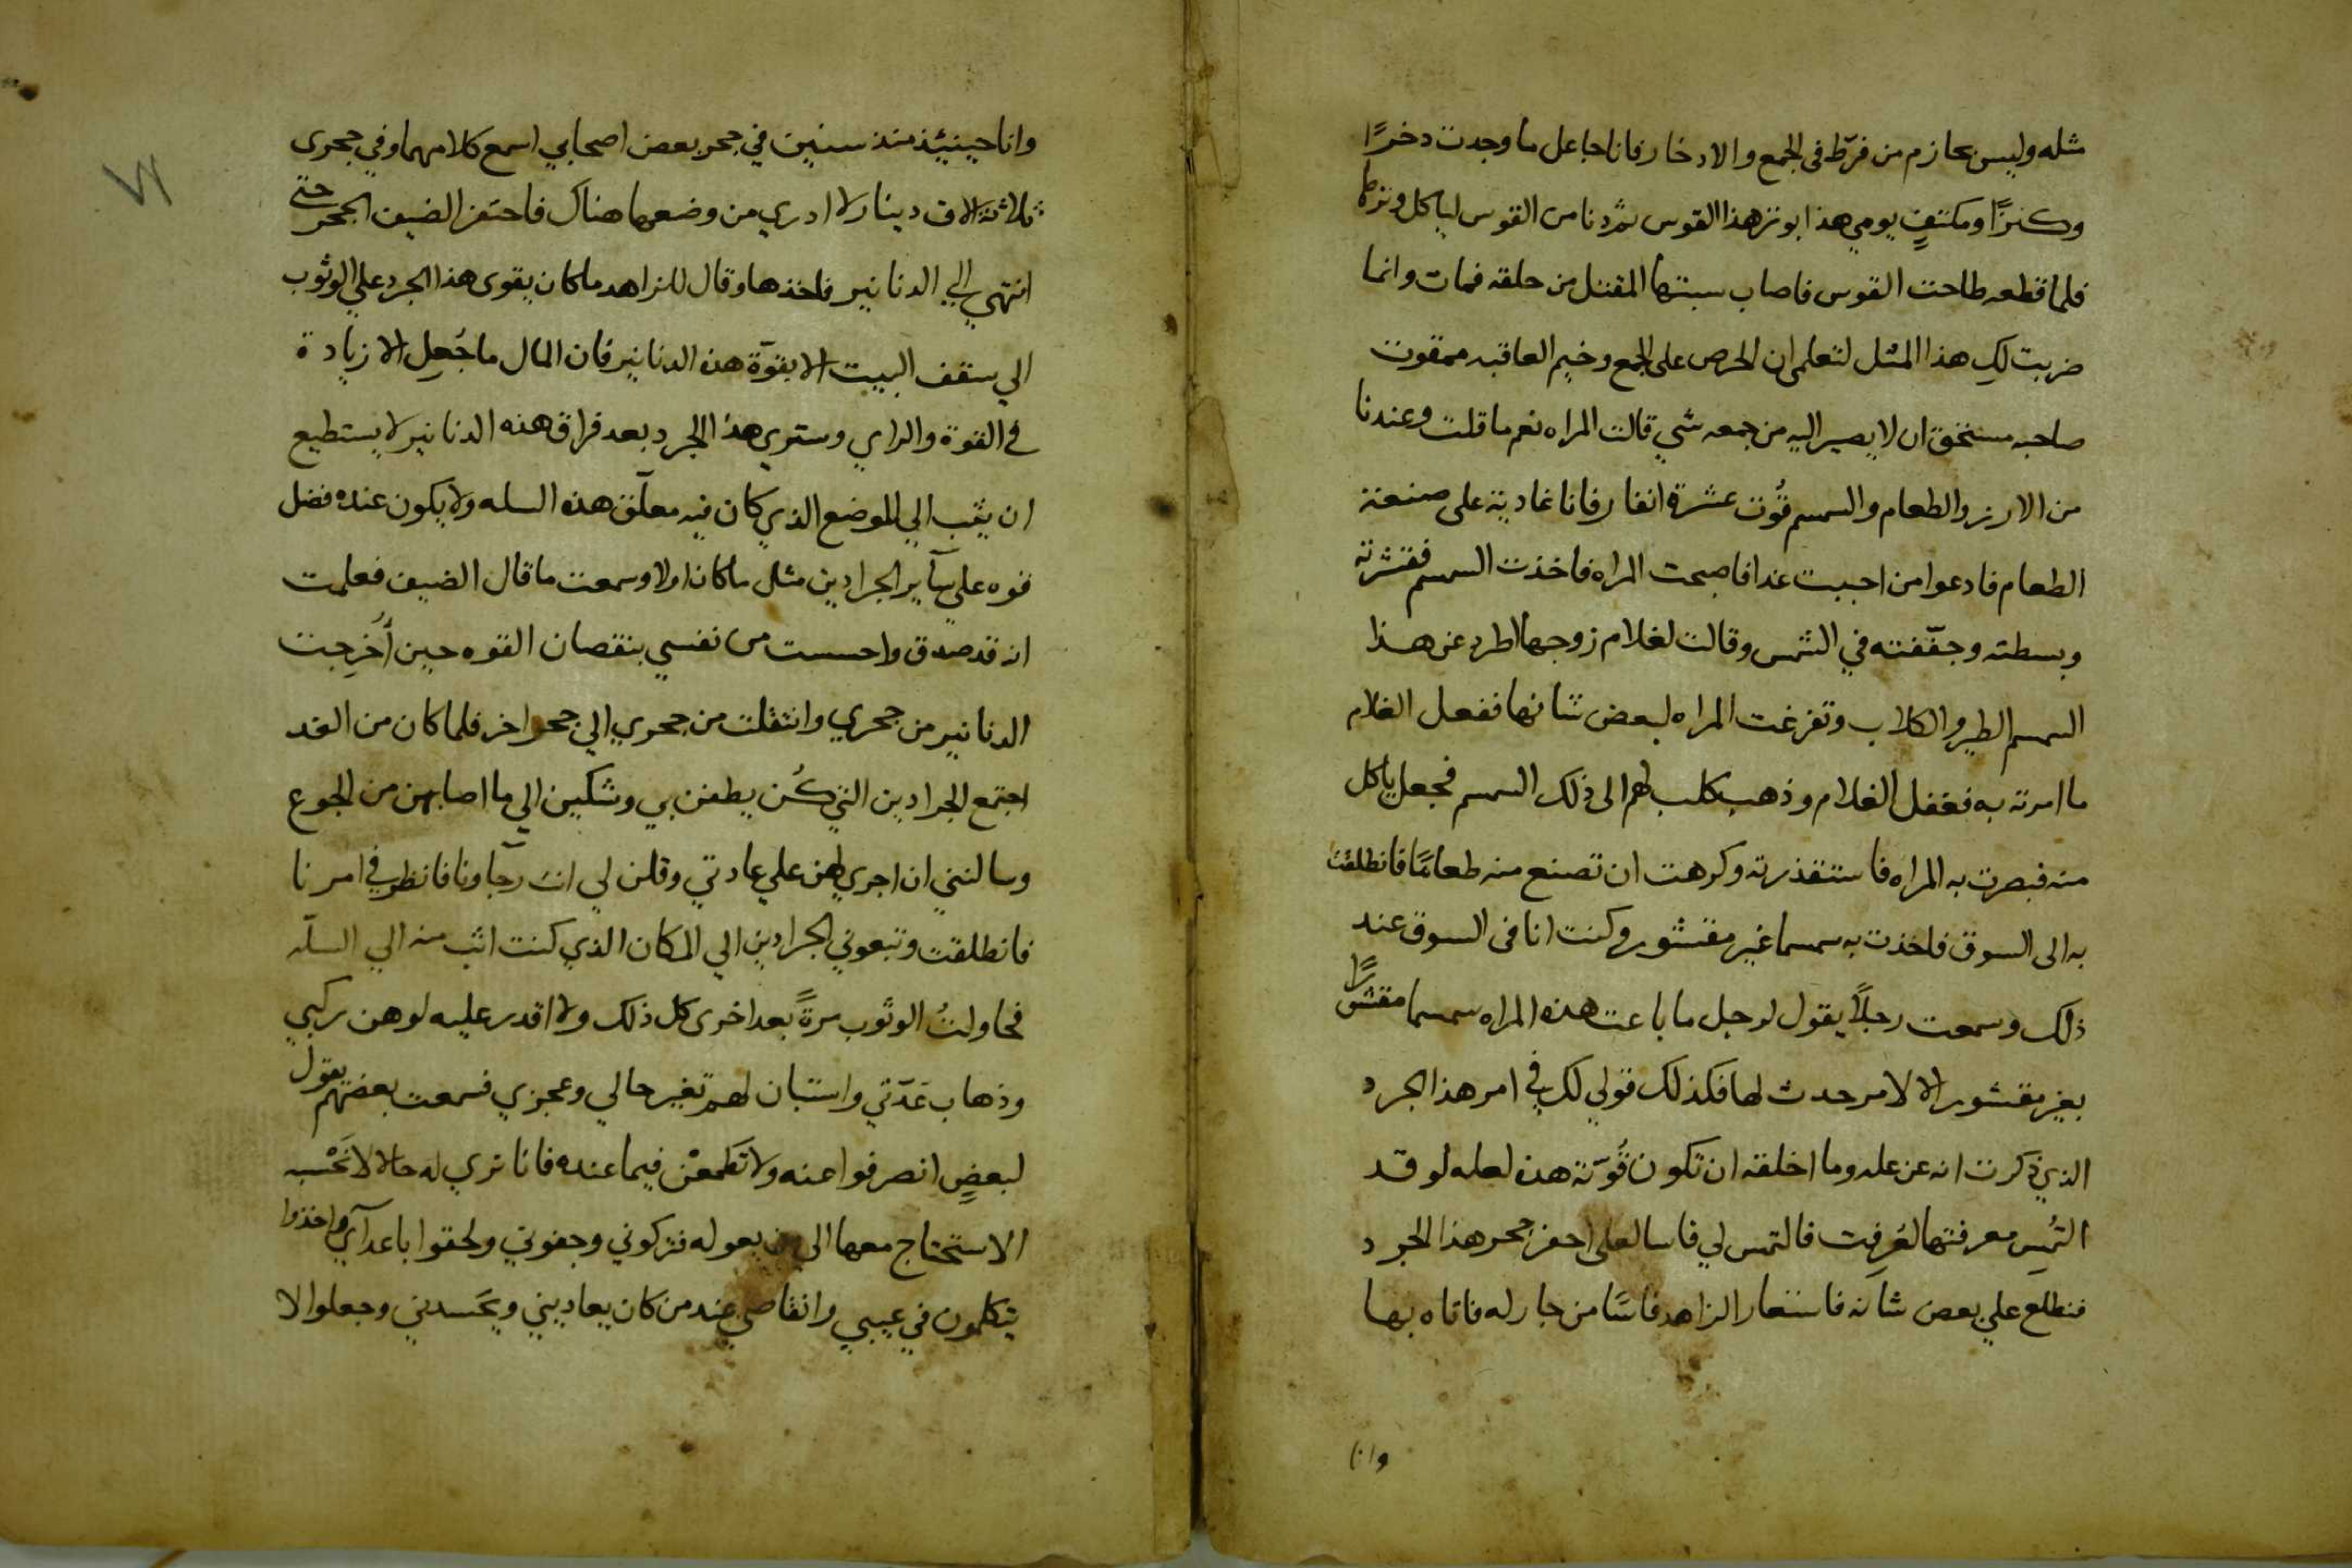 مثله وليس بحازم من فرّط فى الجمع والادخار فانا جاعل ما وجدت دخرًا
وكنزًا ومكتفٍ يومي هذا بوتر هذا القوس ثم دنا من القوس لياكل وترها
فلما قطعه طاحت القوس فاصاب سيتها المقتل من حلقه فمات وانما
ضربت لكِ هذا المثل لتعلمى ان الحرص على الجمع وخيم العاقبه ممقوت
صاحبه مستحق ان لا يصير اليه من جمعه شي قالت المراه نعم ما قلت وعندنا
من الارز والطعام والسمسم قُوت عشرة انفار فانا غادية على صنعة
الطعام فادعوا من احببت غدا فاصبحت المراه فاخذت السمسم فقشرته
وبسطته وجفّفته في الشمس وقالت لغلام زوجها اطرد عن هذا
السمسم الطير والكلاب وتفرغت المراه لبعض شانها ففعل الغلام
ما امرته به فغفل الغلام وذهب كلب لهم الى ذلك السمسم فجعل ياكل
منه فبصرت به المراه فاستقذرته وكرهت ان تصنع منه طعامًا فانطلقت
به الى السوق فاخذت به سمسما غير مقشور وكنت انا فى السوق عند
ذلك وسمعت رجلًا يقول لرجل ما باعت هذه المراه سمسما مقشورًا
بغير مقشور الا لامر حدث لها فكذلك قولي لك في امر هذا الجرد
الذي ذكرت انه عن عله وما اخلقه ان تكون قُوّته هذه لعله لو قد
التُمِس معرفتها لعُرِفت فالتمس لي فاسا لعلى احفر جحر هذا الجرد
فنطلع علي بعض شانه فاستعار الزاهد فاسًا من جار له فاتاه بها
وانا
وانا حينيئذ منذ سنين في جحر بعض اصحابي اسمع كلامهما وفي جحرى
ثلاثة الاف دينار لا ادري من وضعها هناك فاحتفر الضيف الجحر حتى
انتهي الي الدنانير فاخذها وقال للزاهد ما كان يقوى هذا الجرد علي الوثوب
الي سقف البيت الا بقوّة هذه الدنانير فان المال ما جُعِل الا زيادة
في القوة والراي وستري هذا الجرد بعد فراق هذه الدنانير لا يستطيع
ان يثب الي الموضع الذي كان فيه معلّق هذه السله ولا يكون عنده فضل
قوه علي سآير الجرادين مثل ما كان اولا وسمعت ما قال الضيف فعلمت
انه قد صدق واحسست من نفسي بنقصان القوه حين اُخرِجت
الدنانير من جحري وانتقلت من جحري الي جحر اخر فلما كان من الغد
اجتمع الجرادين التي كُن يطفن بي وشكين الي ما اصابهن من الجوع
وسالنني ان اجري لهن علي عادتي وقلن لي انت رجاونا فانظر في امرنا
فانطلقت وتبعوني الجرادين الي المكان الذي كنت اثب منه الي السلّه
فحاولتُ الوثوب مرةً بعد اخرى كل ذلك ولا اقدر عليه لوهن ركبي
وذهاب عَدّتي واستبان لهم تغير حالي وعجزي فسمعت بعضهم يقول
لبعضٍ انصرفوا عنه ولا تَطمعْن فيما عنده فانا نري له حالا لا نَحْسبه
الا ستحتاج معها الي من يعوله فتركوني وجفوني ولحقوا باعدآي واخذوا
يتكلمون في عيبي وانقاصي عند من كان يعاديني ويحَسدني وجعلوا لا